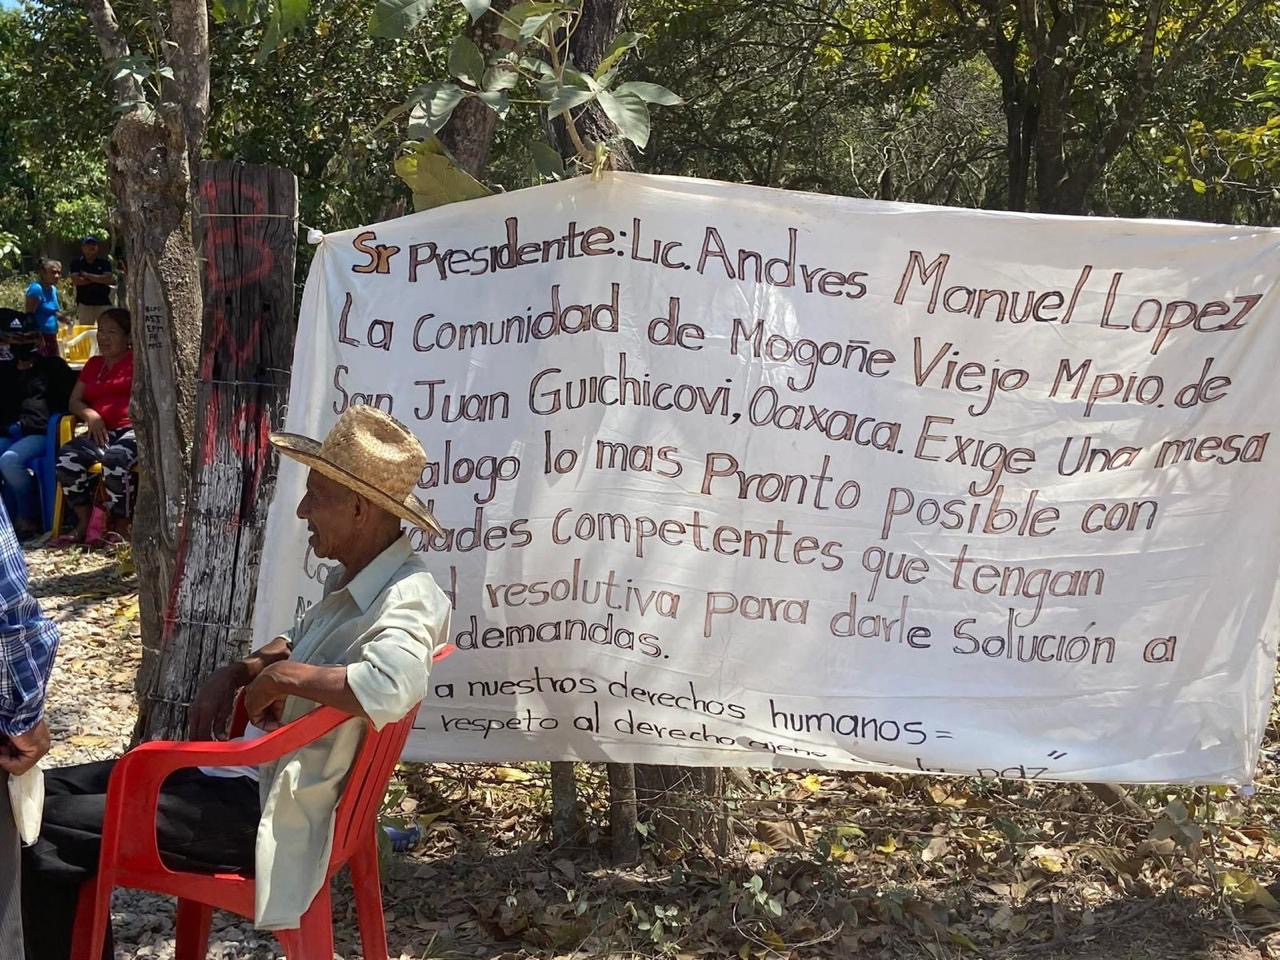 Sr Presidente: Lic. Andres Manuel Lopez
La Comunidad de Mogoñe Viejo Mpio. de
San Juan Guichicovi, Oaxaca. Exige Una mesa
alogo lo mas Pronto posible con
dades competentes que tengan
resolutiva para darle Solución a
demandas.
a nuestros derechos humanos=
respeto al derecho ajeno la paz"